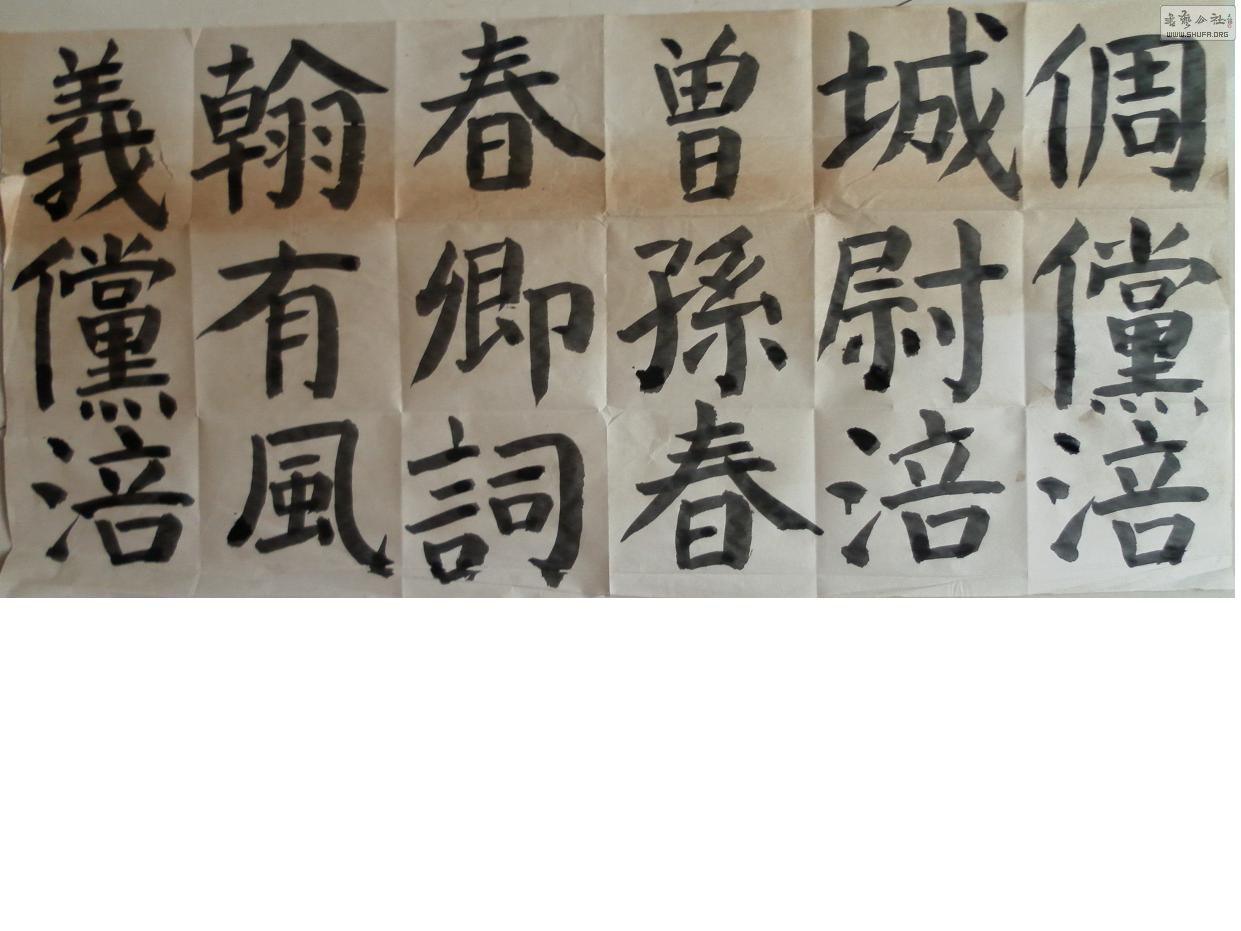 倜儻涪
城尉涪
曽孫春
春卿詞
翰有風
義儻涪
書藝公社
WWW.SHUFA.ORG